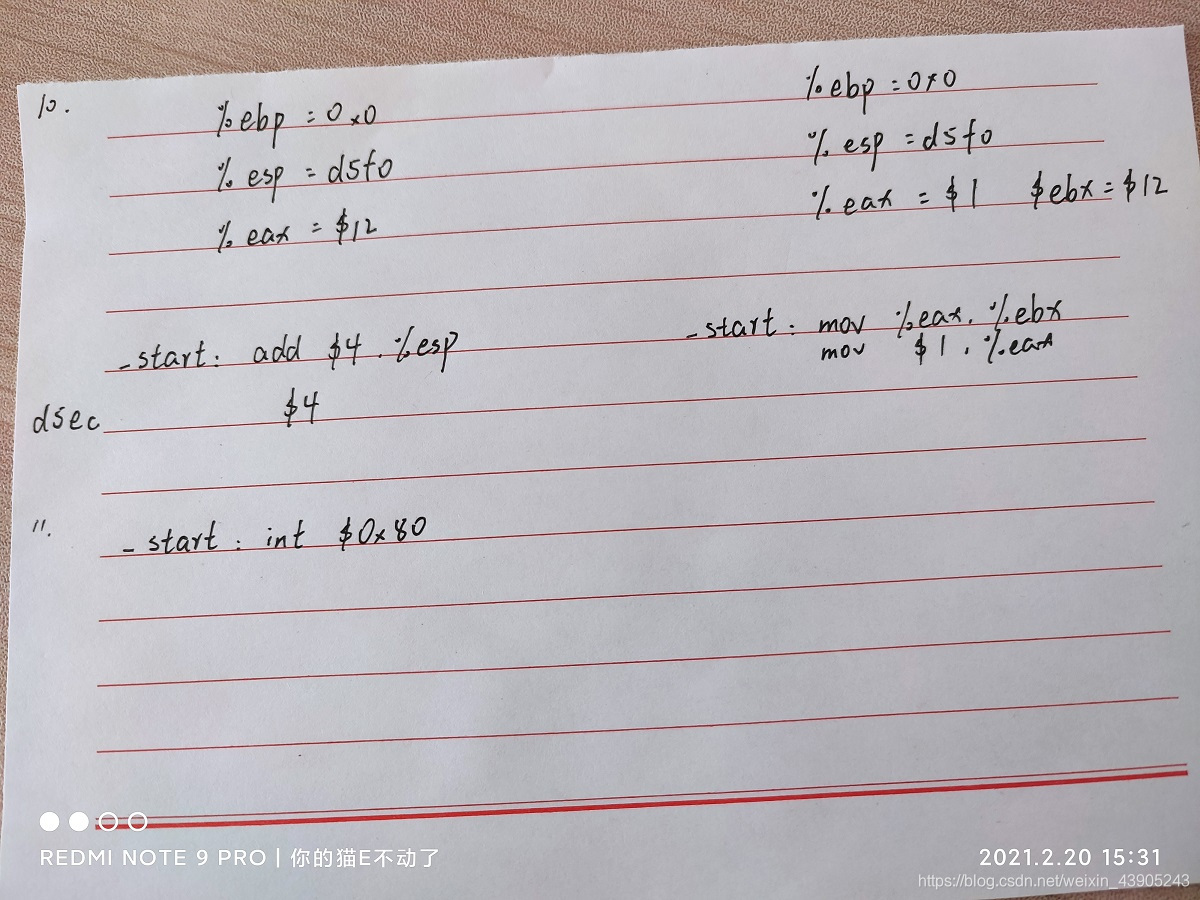 10.
%ebp = 0x0
%esp = d5f0
%eax = $12
%ebp = 0x0
%esp = d5f0
%eax = $1 $ebx = $12
_start: add $4, %esp
_start: mov %eax, %ebx
mov $1, %eax
d5ec $4
11. _start: int $0x80
REDMI NOTE 9 PRO | 你的猫E不动了
2021.2.20 15:31
https://blog.csdn.net/weixin_43905243